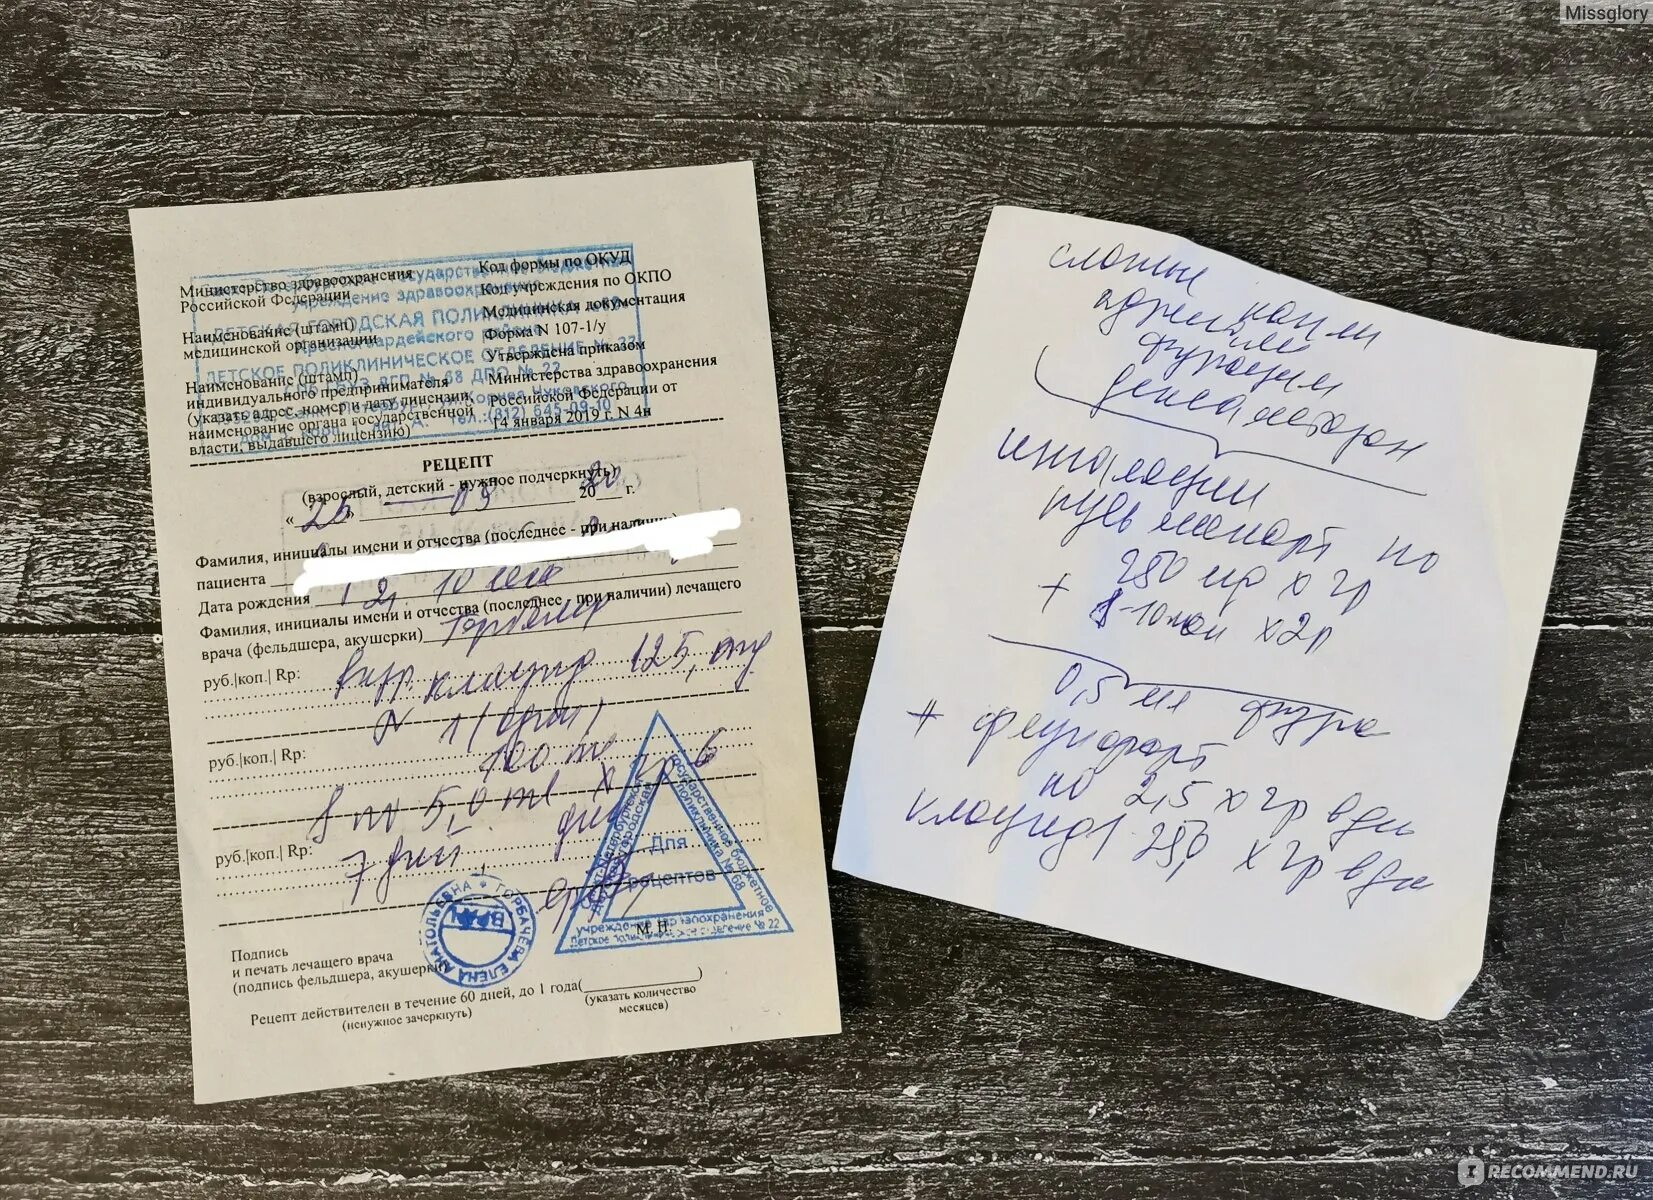 Missglory
Министерство здравоохранения
Российской Федерации
Наименование (штамп)
медицинской организации
Наименование (штамп)
индивидуального предпринимателя
(указать адрес, номер и дату лицензии,
наименование органа государственной
власти, выдавшего лицензию)
Код формы по ОКУД
Код учреждения по ОКПО
Медицинская документация
Форма N 107-1/у
Утверждена приказом
Министерства здравоохранения
Российской Федерации от
14 января 2019 г. N 4н
учреждение здравоохранения
ДЕТСКАЯ ГОРОДСКАЯ ПОЛИКЛИНИКА
Красногвардейского
ДЕТСКОЕ ПОЛИКЛИНИЧЕСКОЕ ОТДЕЛЕНИЕ № 22
ДГП № 68 ДПО № 22
тел.:(812) 645-09-10
РЕЦЕПТ
(взрослый, детский - нужное подчеркнуть)
« 25 » 03 20 20 г.
Фамилия, инициалы имени и отчества (последнее - при наличии)
пациента
Дата рождения
Фамилия, инициалы имени и отчества (последнее - при наличии) лечащего
врача (фельдшера, акушерки)
руб.|коп.| Rp: клацид 125,
N 1 (один)
руб.|коп.| Rp: 100 ml
S по 5,0 ml x 2р в
руб.|коп.| Rp: 7 дней
Для
рецептов
Детское поликлиническое отделение № 22
ГОРБАЧЕВА ЕЛЕНА АНАТОЛЬЕВНА
ВРАЧ
М.П.
Подпись
и печать лечащего врача
(подпись фельдшера, акушерки)
Рецепт действителен в течение 60 дней, до 1 года(
)
(ненужное зачеркнуть)
(указать количество
месяцев)
сложные капли
адреналин
фурацилин
дексаметазон
ингаляции
пульмикорт по
250 мкр x 2р
+ 8-10 x 2р
0,5 мл физра
+ флуифорт
по 2,5 x 2р в день
клацид 250 x 2р в день
RECOMMEND.RU